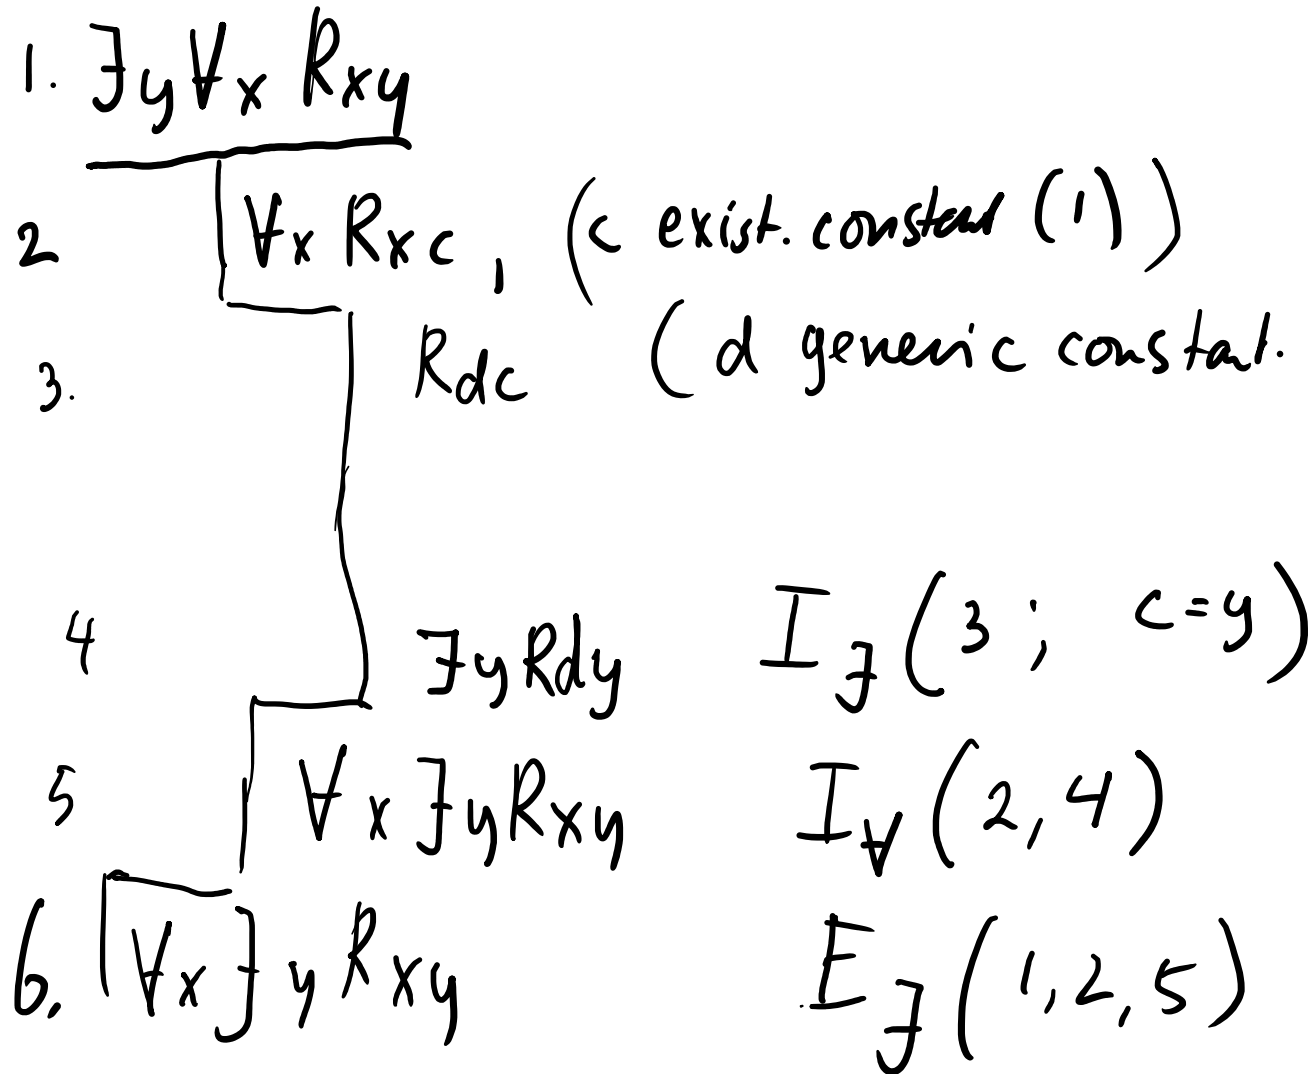 1. ∃y∀x Rxy
2 ∀x Rxc, (c exist. constant (1))
3. Rdc (d generic constant.
4 ∃yRdy I∃(3; c=y)
5 ∀x∃yRxy I∀(2,4)
6. ∀x∃yRxy E∃(1,2,5)